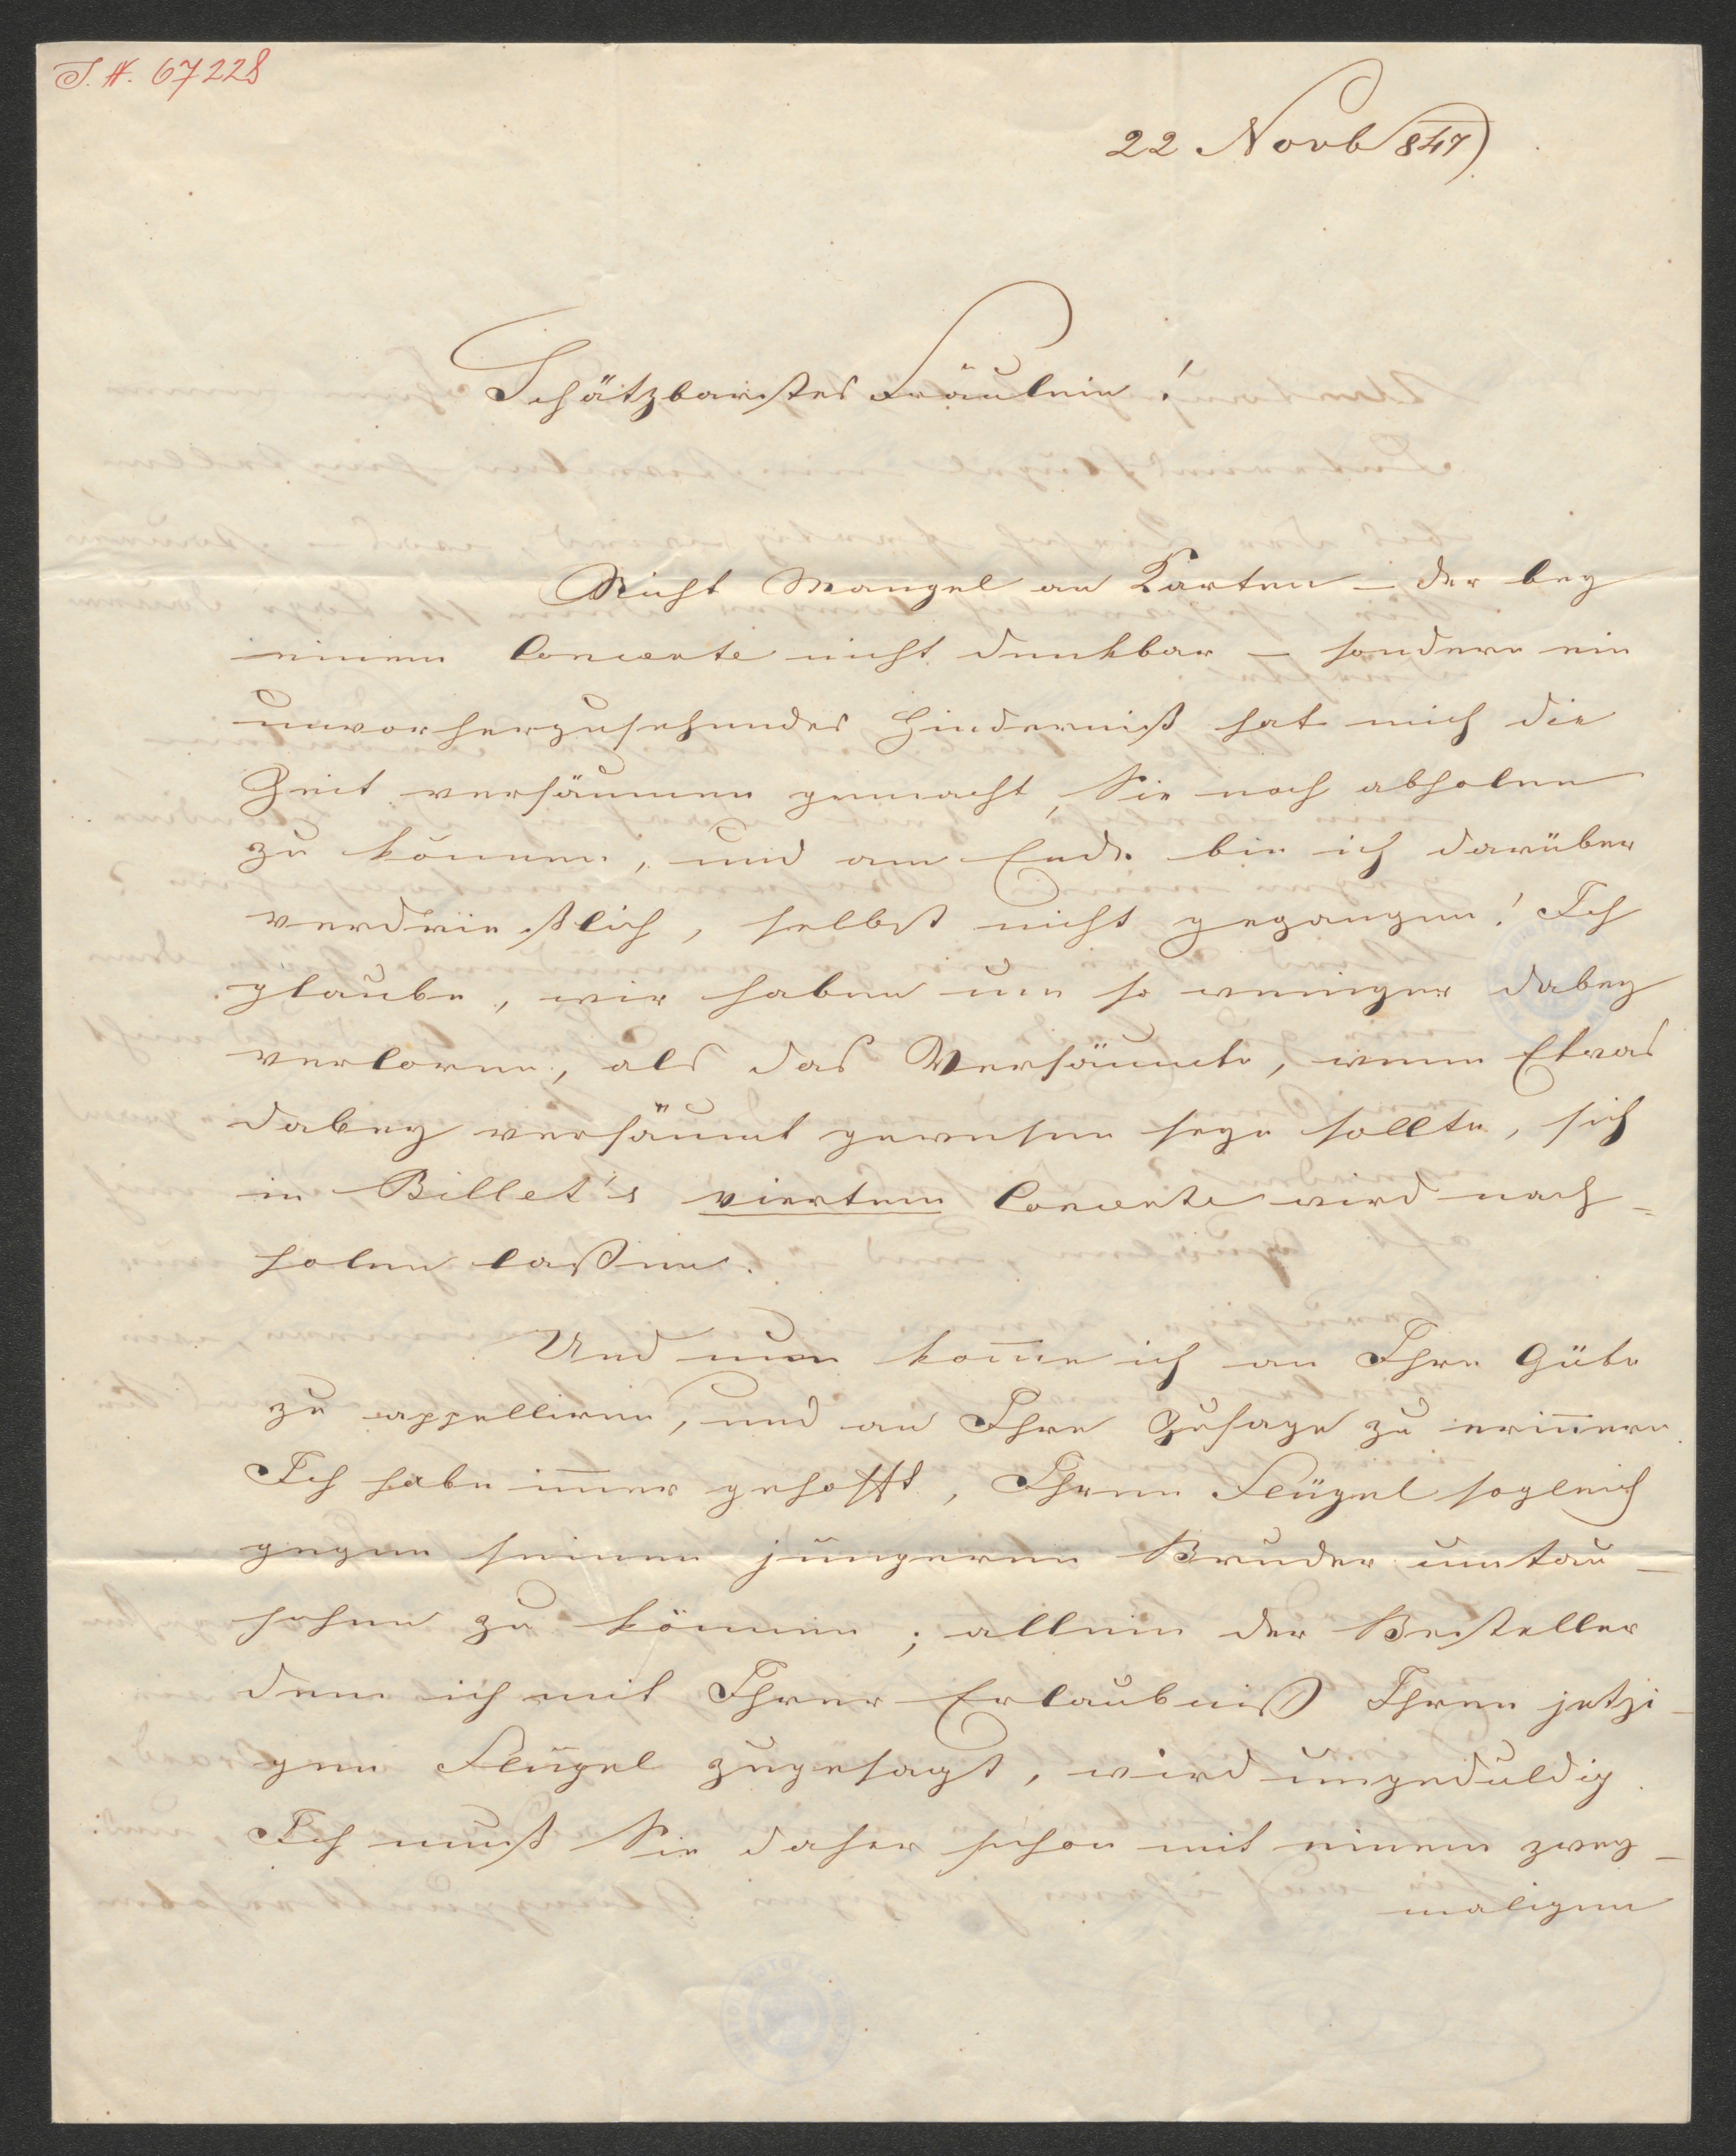 I. N. 67228
22 Novb 847)
Schätzbarstes Fräulein!
Nicht Mangel an Karten – der bey
einem Concerte nicht denkbar – sondern ein
unvorherzusehendes Hinderniß hat mich die
Zeit versäumen gemacht, Sie noch abholen
zu können, und am Ende bin ich darüber
verdrießlich, selbst nicht gegangen! Ich
glaube, wir haben um so weniger dabey
verloren, als das Versäumte, wenn Etwas
dabey versäumt gewesen seyn sollte, sich
in Billet's viertem Concerte wird nach-
holen laßen.
Und nun kom̄e ich an Ihre Güte
zu appelliren, und an Ihre Zusage zu erin̄ern.
Ich habe im̄er gehofft, Ihren Flügel sogleich
gegen seinen jüngeren Bruder umtau-
schen zu können; allein der Besteller
dem ich mit Ihrer Erlaubniß Ihren jetzi-
gen Flügel zugesagt, wird ungeduldig.
Ich muß Sie daher schon mit einem zwey-
maligen